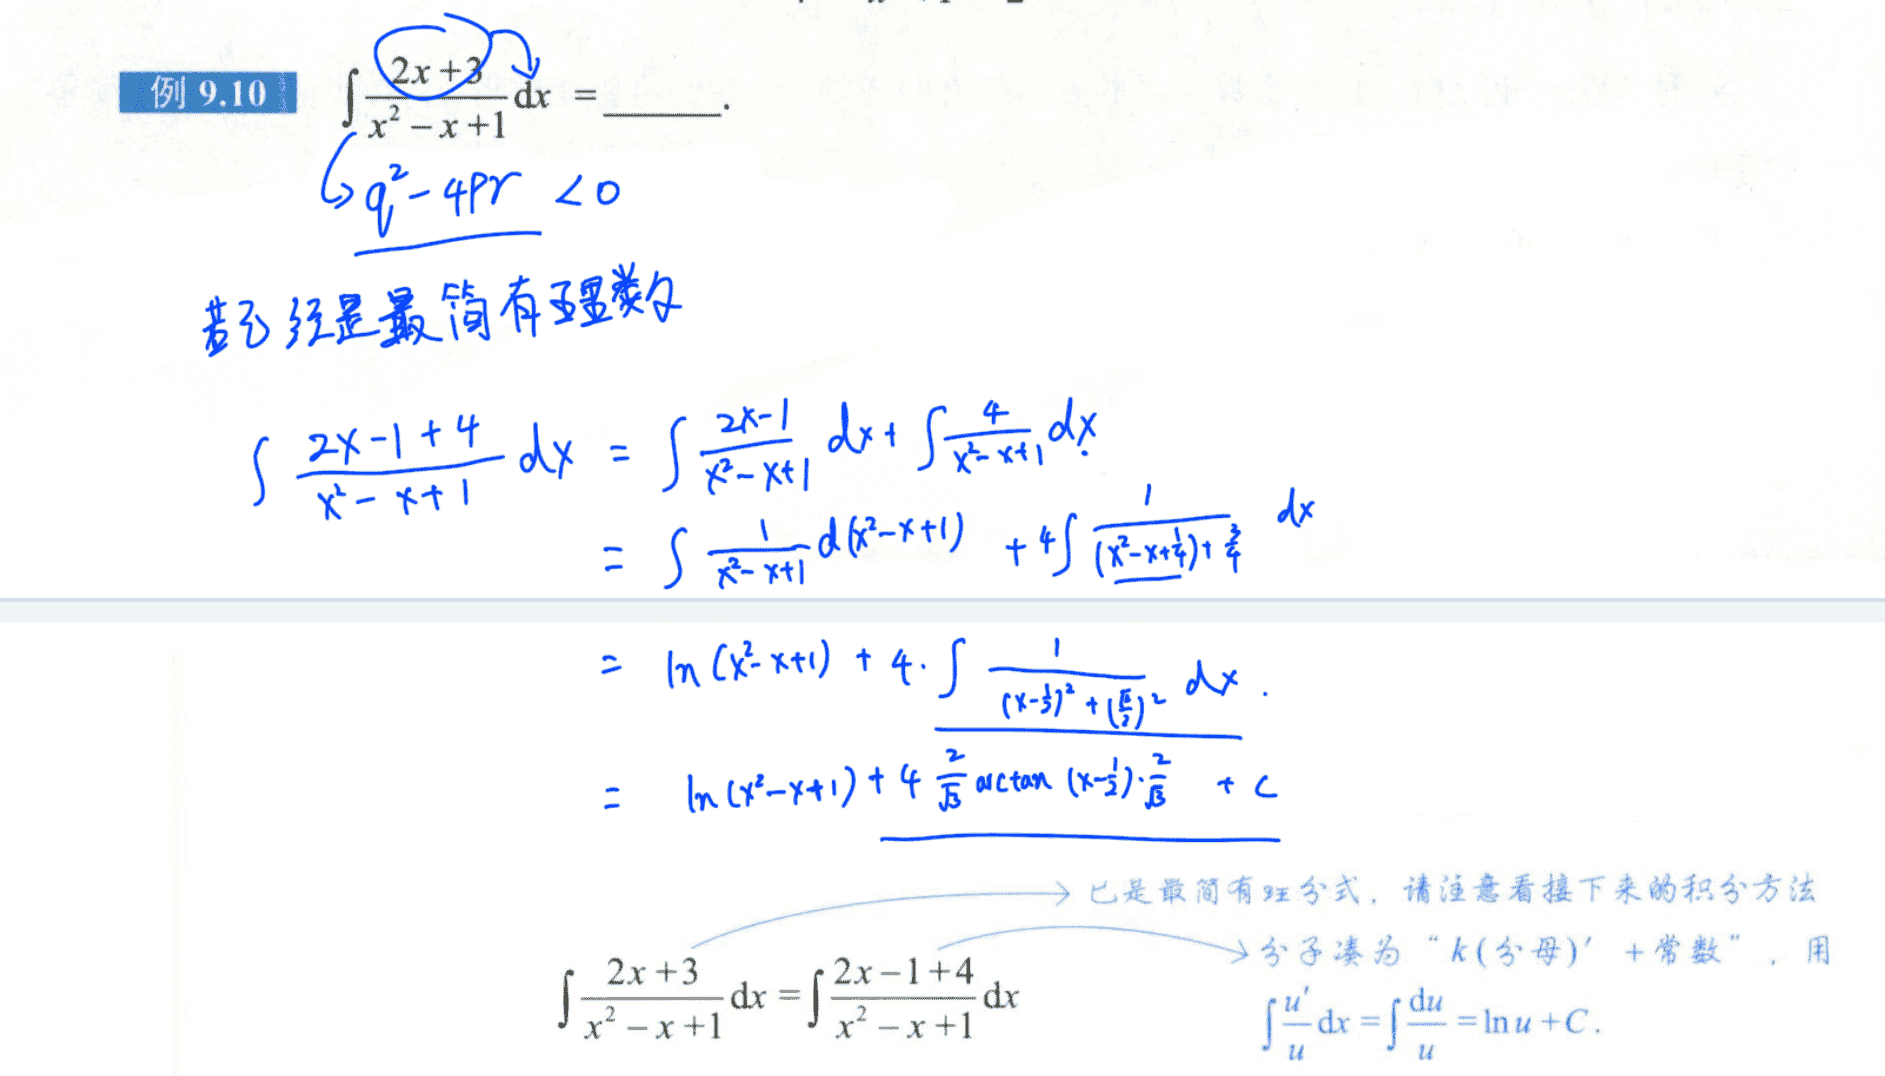 例 9.10 ∫ (2x+3)/(x² − x + 1) dx = ______.
q² − 4pr < 0
若已经是最简有理数
∫ (2x−1+4)/(x²−x+1) dx = ∫ (2x−1)/(x²−x+1) dx + ∫ 4/(x²−x+1) dx
= ∫ 1/(x²−x+1) d(x²−x+1) + 4∫ 1/((x²−x+1/4)+3/4) dx
= ln(x²−x+1) + 4·∫ 1/((x−1/2)²+(√3/2)²) dx.
= ln(x²−x+1) + 4 2/√3 arctan (x−1/2)·2/√3 + C
已是最简有理分式，请注意看接下来的积分方法
分子凑为“k(分母)′+常数”，用
∫ (2x+3)/(x²−x+1) dx = ∫ (2x−1+4)/(x²−x+1) dx
∫ u′/u dx = ∫ du/u = ln u + C.